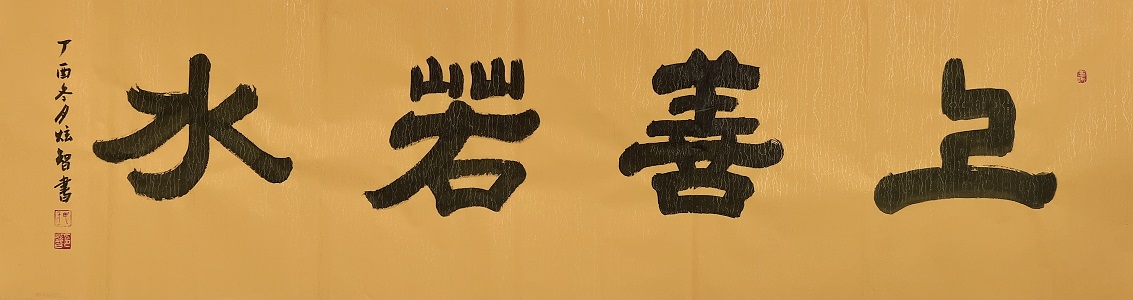 上善若水
丁酉冬月炫智書